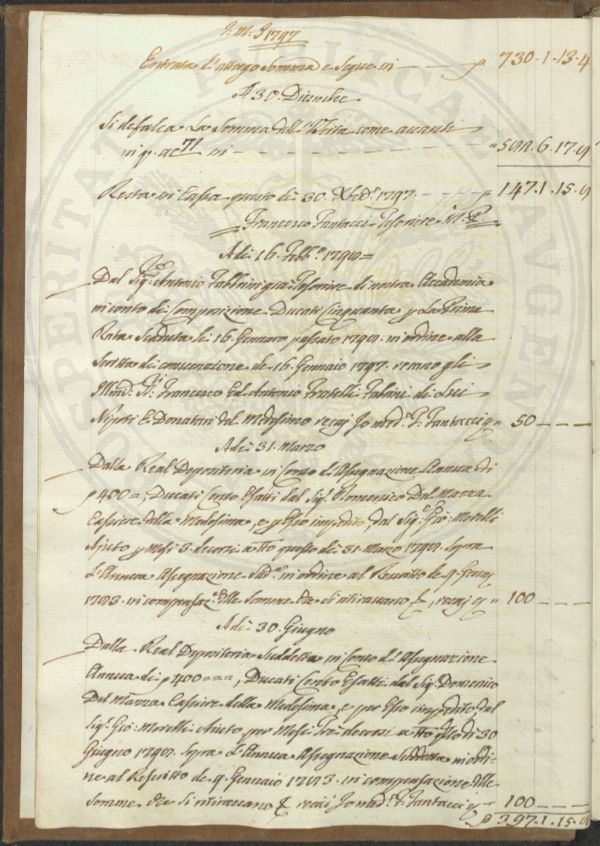 J. M. J. 1797
Entrata l'intrago Somma e Segue in — — — p 730.1.13.4
A 30. Dicembre
Si defalca La Somma dell' Uscita come avanti
in q.° a c. 71 in — — — 6.17.
Resta in Cassa questo dì 30. Xbre 1797 — — p 147.1.15.
Francesco Fantacci Tesoriere M. P.
A dì 16. Febb.°
Dal Sig.re Antonio Fabbrini già Tesoriere di nostra Accademia
in conto di Composizione Ducati Cinquanta p La Prima
Rata Scaduta li 16. Gennaro passato in ordine alla
Scritta di convenzione de 16. Gennaio 1797. gli
Illmi. SS.ri Francesco Ed Antonio Fratelli Fabbrini di Lui
Nipoti E Donatari del Medesimo F. Fantacci — 50 — —
A dì 31. Marzo
Dalla Real Depositeria in Conto d.l Assegnazione Annua di
p 400 =, Ducati Cento Esatti dal Sig.re Domenico Del Mazza
Cassiere della Medesima, e p Esso impedito dal Sig.re Gio: Morelli
Aiuto p Mesi 3. decorsi a tto questo dì 31. Marzo Sopra
L'Annua Assegnazione in ordine al Rescritto de 9. Genn.
in compensaz.e delle Somme che si ritiravano — 100 — —
A dì 30. Giugno
Dalla Real Depositeria Suddetta in Conto d.l Assegnazione
Annua di p 400 = = =, Ducati Cento Esatti dal Sig.re Domenico
Del Mazza Cassiere della Medesima, e per Esso impedito dal
Sig.re Gio: Morelli Aiuto per Mesi Tre decorsi a tto il dì 30
Giugno Sopra L'Annua Assegnazione Suddetta in ordi-
ne al Rescritto de 9. Gennaio in compensazione delle
Somme che si ritiravano F. Fantacci — 100 — —
p 397.1.15.
PROSPERITATI PUBLICAE AUGENDAE